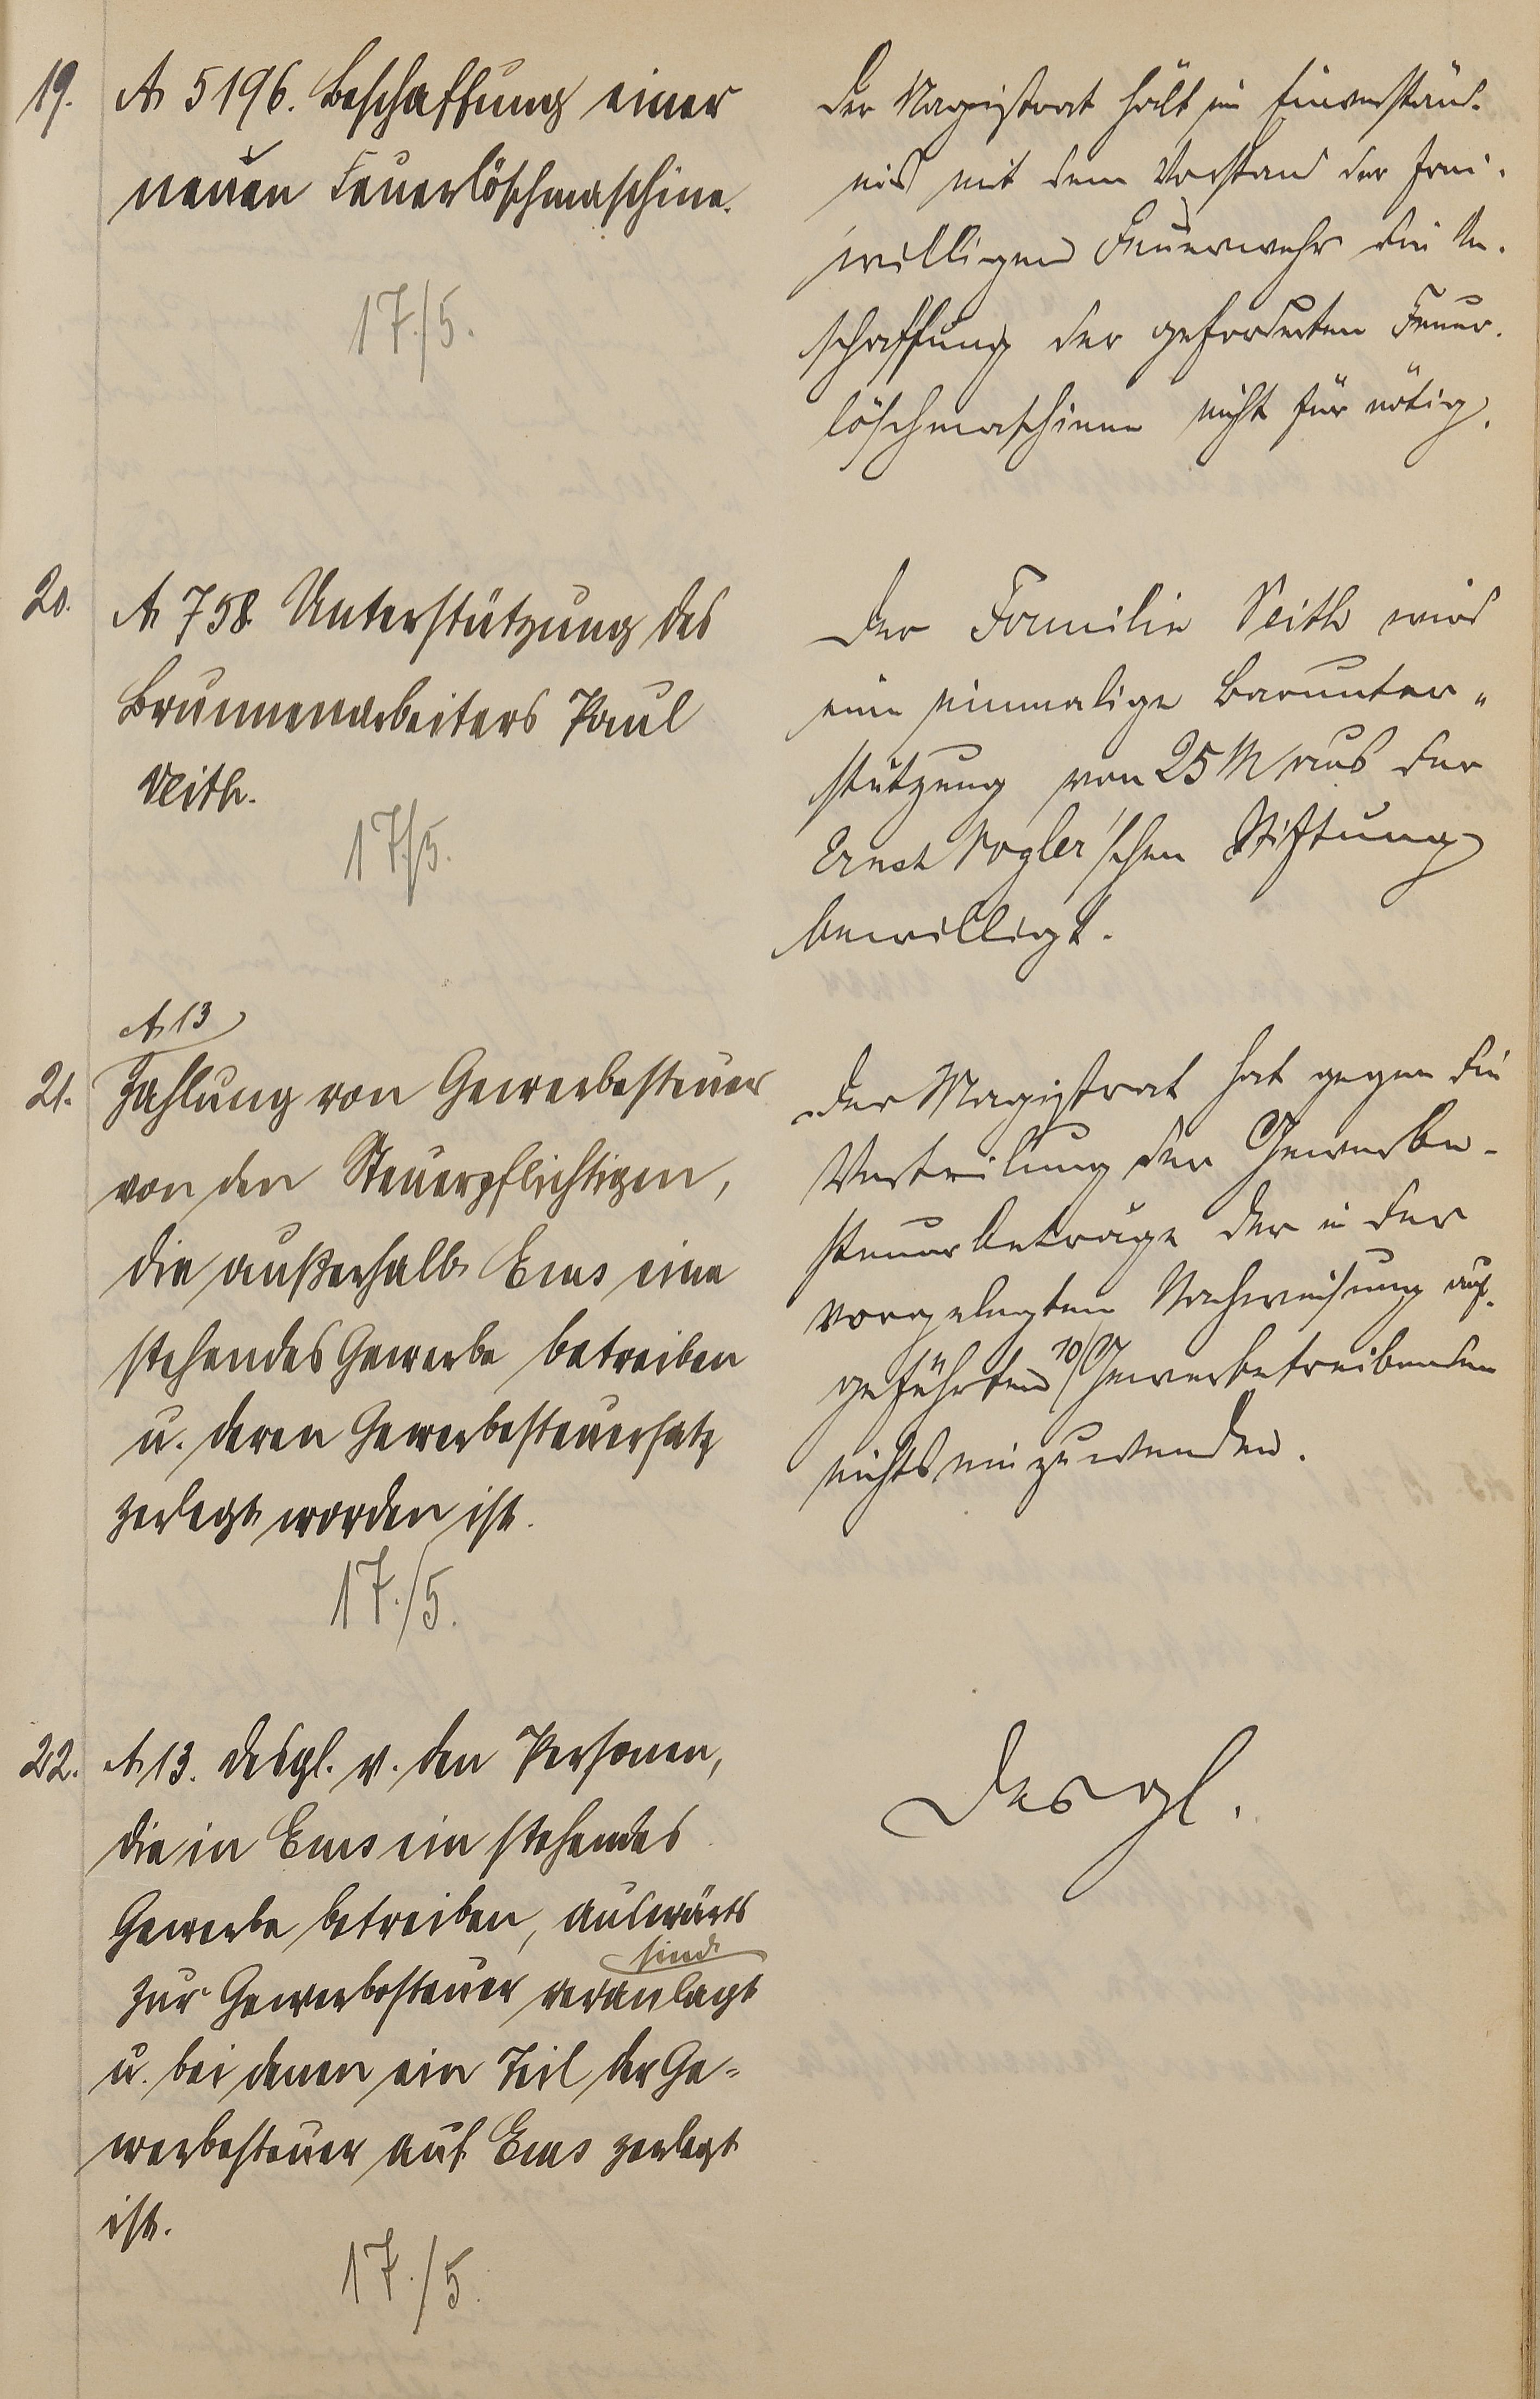 19.
A 5196. Beschaffung einer
neuen Feuerlöschmaschine.
17./5.
Der Magistrat hält im Einverständ-
nis mit dem Vorstand der frei-
willigen Feuerwehr die An-
schaffung der geforderten Feuer-
löschmaschine nicht für nötig.
20.
A 758. Unterstützung des
Brunnenarbeiters Paul
Veith.
17/5.
Der Familie Veith wird
eine einmalige Barunter-
stützung von 25 M aus der
Ernst Vogler'schen Stiftung
bewilligt.
21.
A 13
Zahlung von Gewerbesteuer
von den Steuerpflichtigen,
die außerhalb Ems eine
stehendes Gewerbe betreiben
u. deren Gewerbesteuersatz
zerlegt worden ist.
17./5.
Der Magistrat hat gegen die
Verteilung der Gewerbe-
steuerbeträge der in der
vorgelegten Nachweisung auf-
geführten 10 Gewerbetreibenden
nichts einzuwenden.
22.
A 13. Desgl. v. den Personen,
die in Ems ein stehendes
Gewerbe betreiben, auswärts
sind
zur Gewerbesteuer veranlagt
u. bei denen ein Teil der Ge-
werbesteuer auf Ems zerlegt
ist.
17./5.
Desgl.